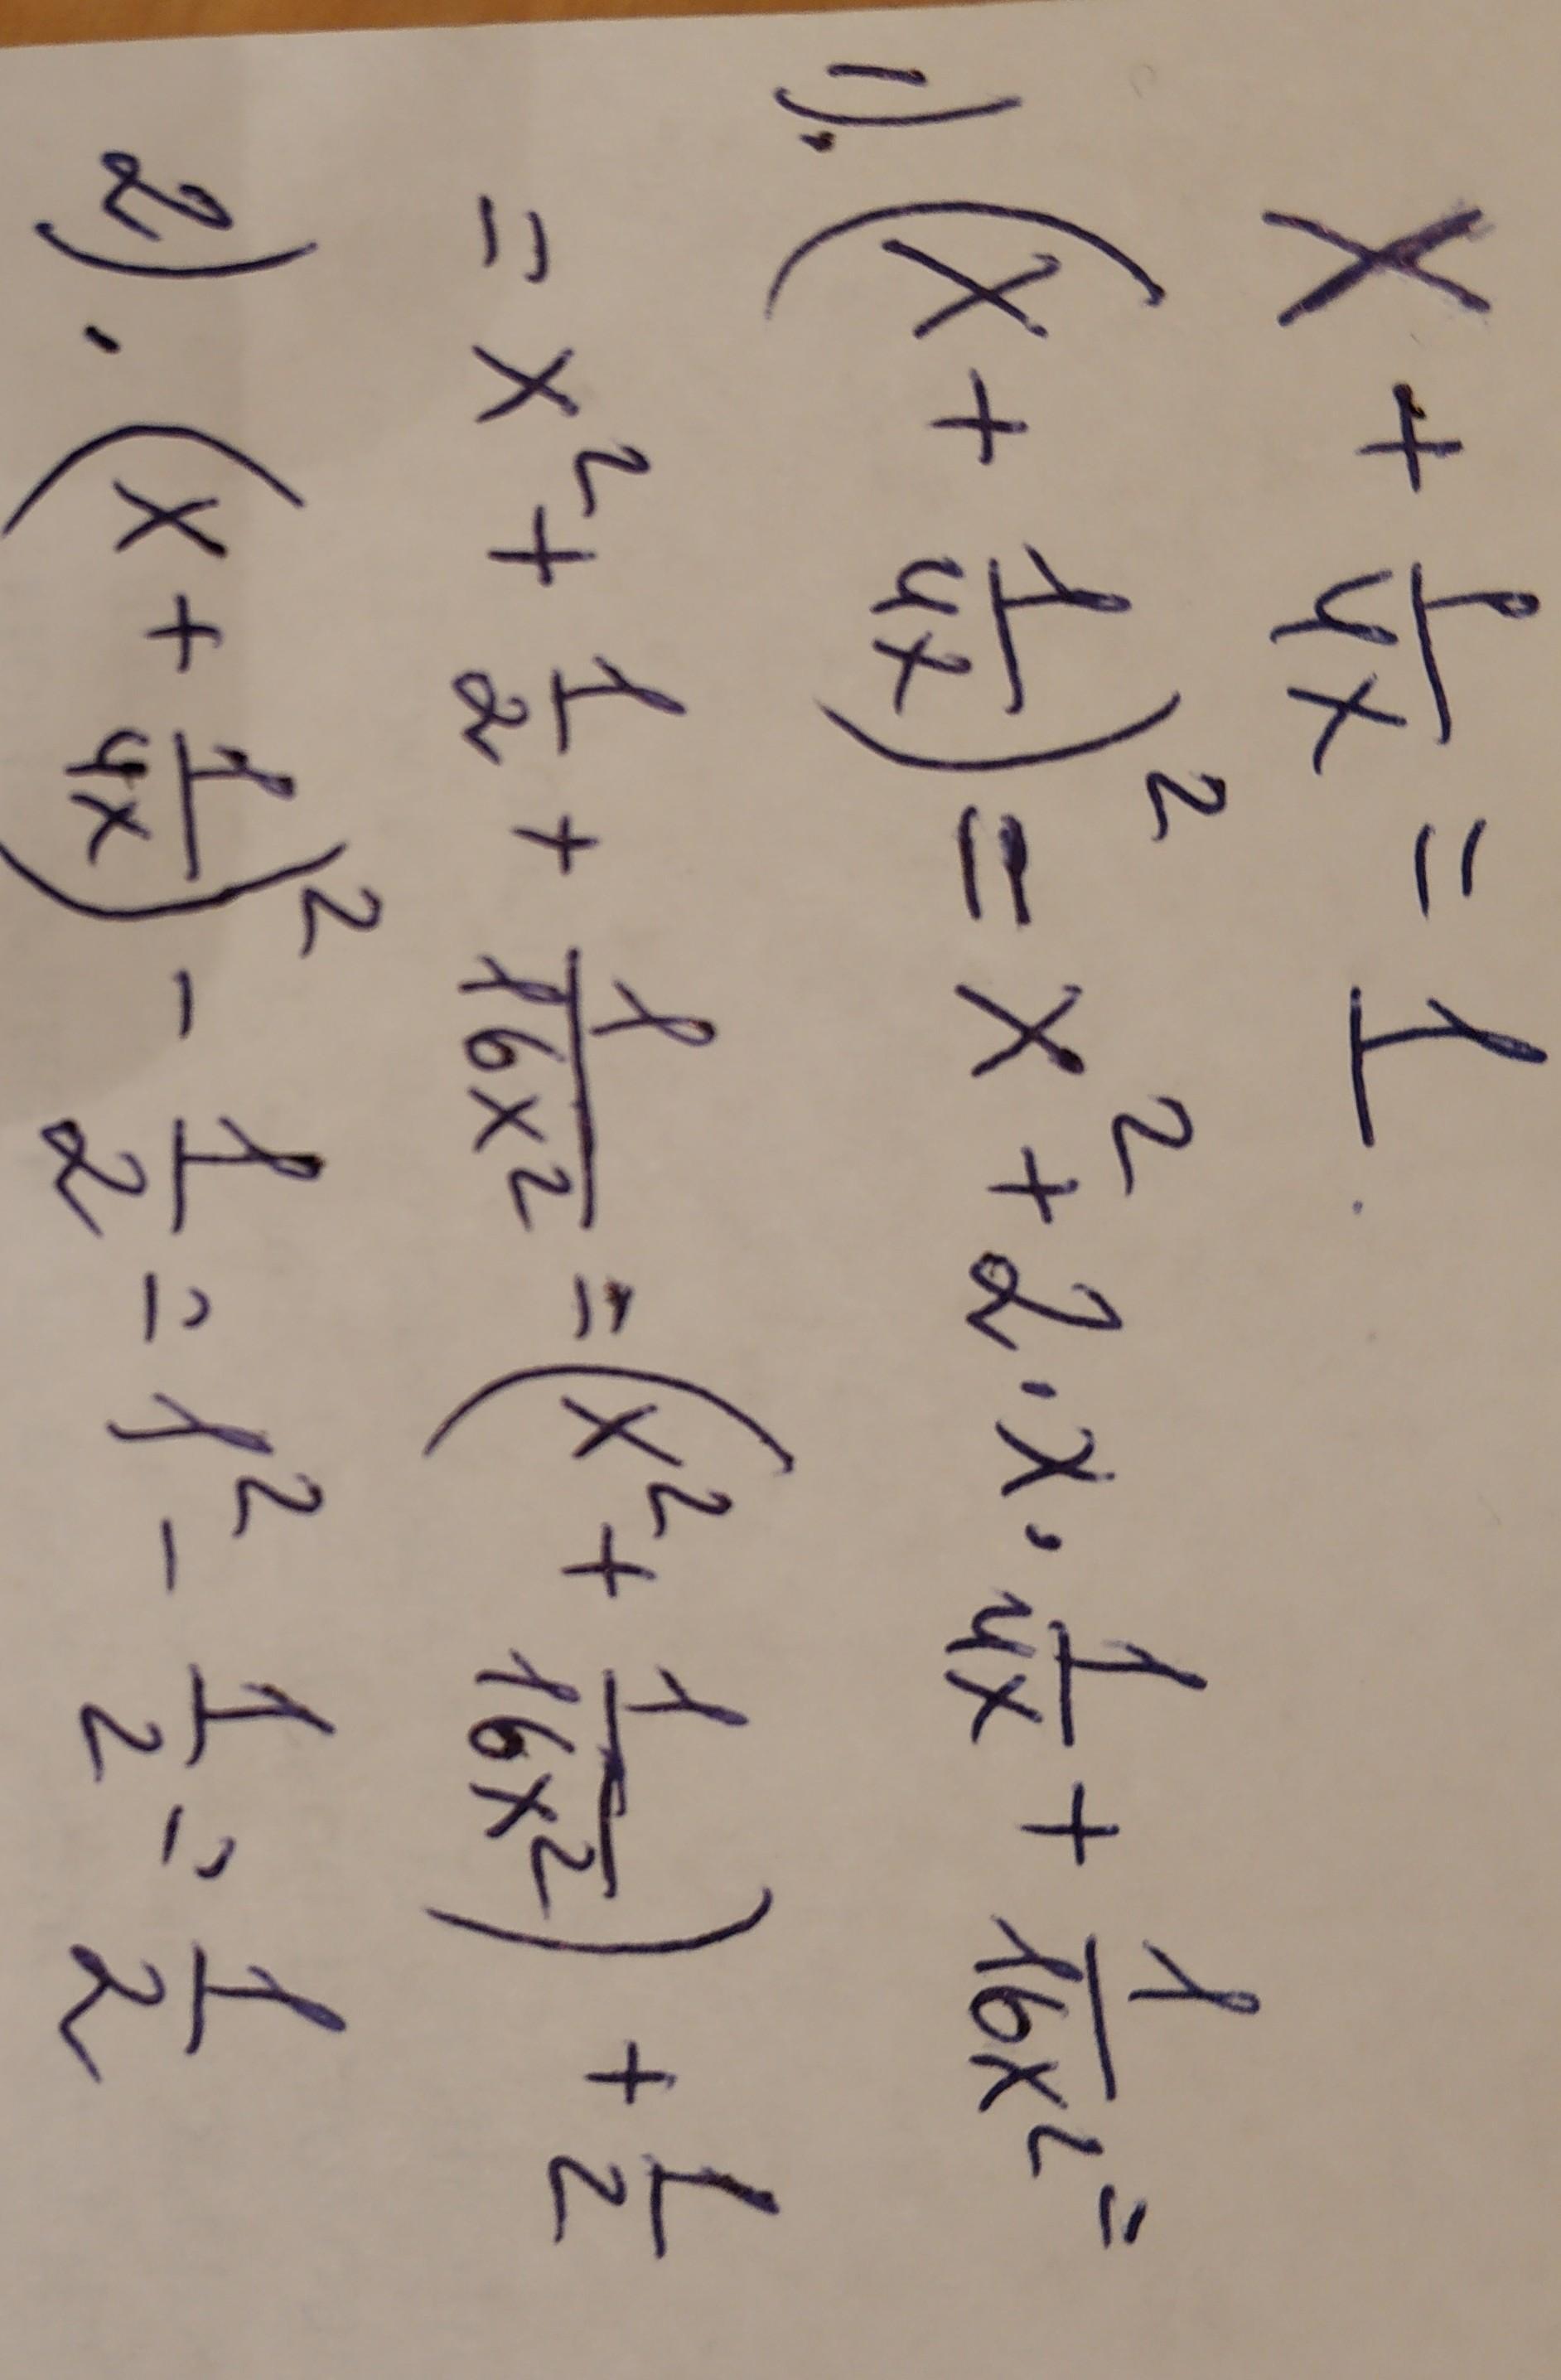 x + 1/4x = 1
1). (x + 1/4x)² = x² + 2 · x · 1/4x + 1/16x² =
= x² + 1/2 + 1/16x² = (x² + 1/16x²) + 1/2
2). (x + 1/4x)² - 1/2 = 1² - 1/2 = 1/2